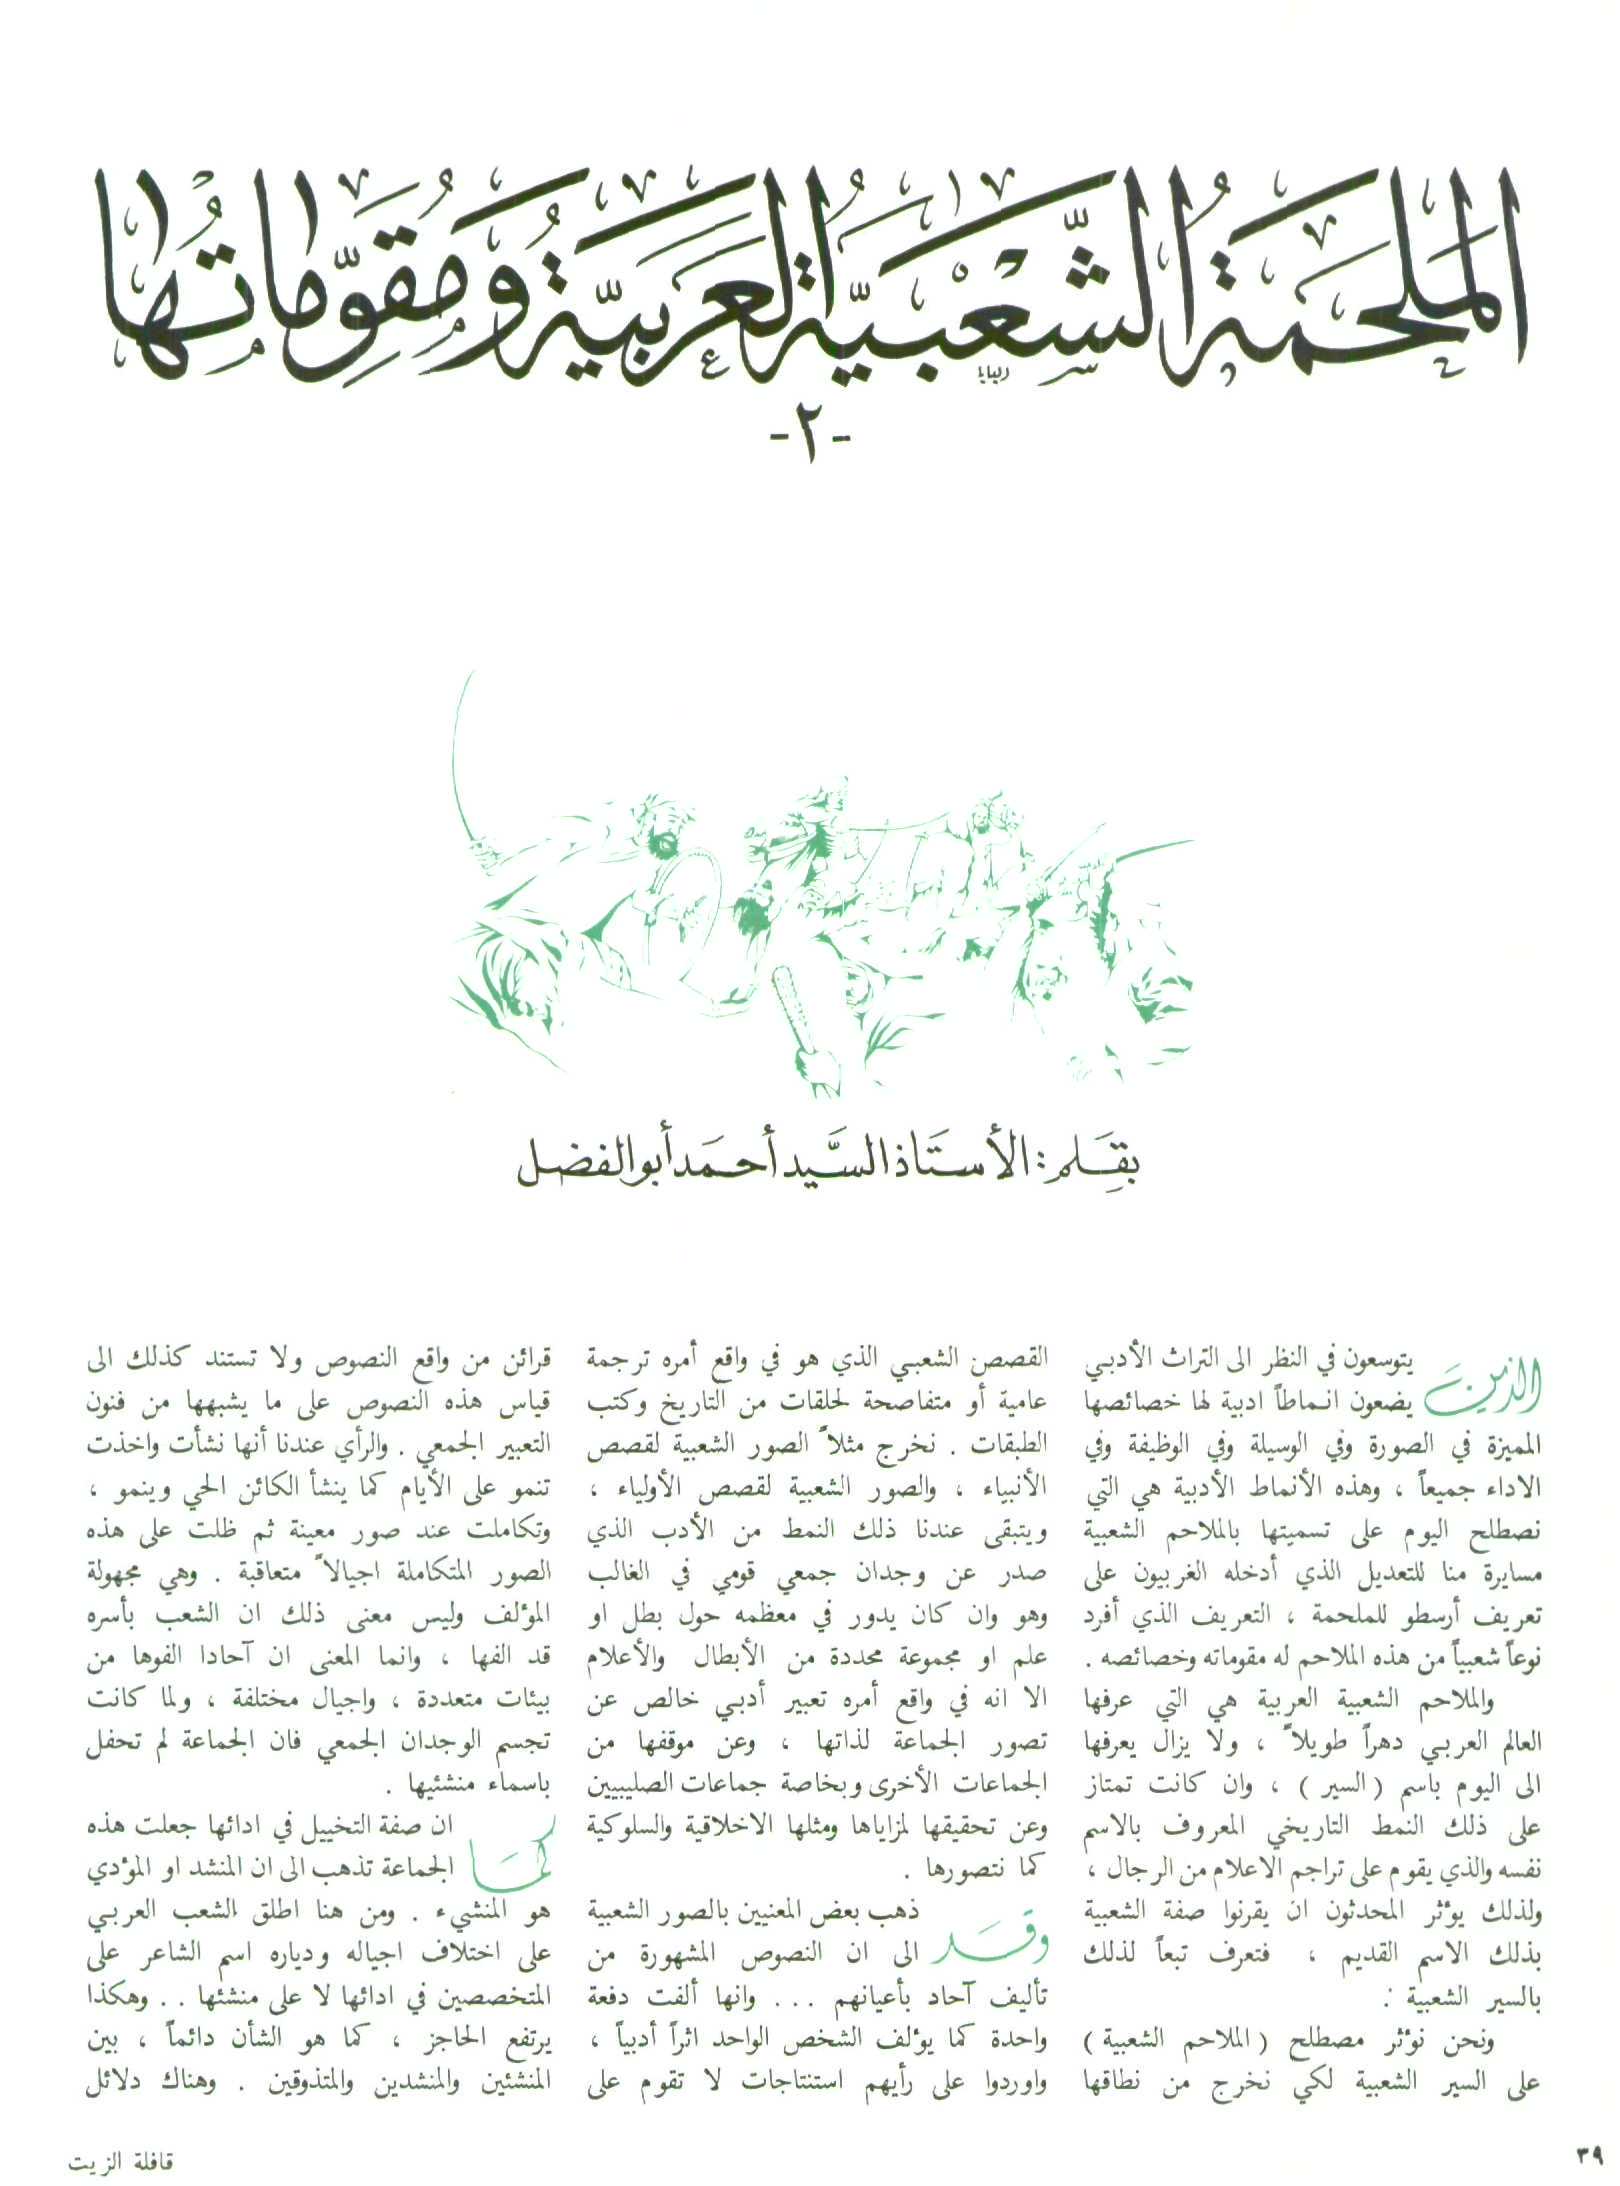 الملحمة الشعبية العربية ومقوماتها
-٢-
بقلم: الأستاذ السيد أحمد أبو الفضل
الذين يتوسعون في النظر الى التراث الأدبي
يضعون انماطاً ادبية لها خصائصها
المميزة في الصورة وفي الوسيلة وفي الوظيفة وفي
الاداء جميعاً ، وهذه الأنماط الأدبية هي التي
نصطلح اليوم على تسميتها بالملاحم الشعبية
مسايرة منا للتعديل الذي أدخله الغربيون على
تعريف أرسطو للملحمة ، التعريف الذي أفرد
نوعاً شعبياً من هذه الملاحم له مقوماته وخصائصه .
والملاحم الشعبية العربية هي التي عرفها
العالم العربي دهراً طويلاً ، ولا يزال يعرفها
الى اليوم باسم ( السير ) ، وان كانت تمتاز
على ذلك النمط التاريخي المعروف بالاسم
نفسه والذي يقوم على تراجم الاعلام من الرجال ،
ولذلك يؤثر المحدثون ان يقرنوا صفة الشعبية
بذلك الاسم القديم ، فتعرف تبعاً لذلك
بالسير الشعبية :
ونحن نؤثر مصطلح ( الملاحم الشعبية )
على السير الشعبية لكي نخرج من نطاقها
القصص الشعبي الذي هو في واقع أمره ترجمة
عامية أو متفاصحة لحلقات من التاريخ وكتب
الطبقات . نخرج مثلاً الصور الشعبية لقصص
الأنبياء ، والصور الشعبية لقصص الأولياء ،
ويتبقى عندنا ذلك النمط من الأدب الذي
صدر عن وجدان جمعي قومي في الغالب
وهو وان كان يدور في معظمه حول بطل او
علم او مجموعة محددة من الأبطال والأعلام
الا انه في واقع أمره تعبير أدبي خالص عن
تصور الجماعة لذاتها ، وعن موقفها من
الجماعات الأخرى وبخاصة جماعات الصليبيين
وعن تحقيقها لمزاياها ومثلها الاخلاقية والسلوكية
كما نتصورها .
وقد ذهب بعض المعنيين بالصور الشعبية
الى ان النصوص المشهورة من
تأليف آحاد بأعيانهم ... وانها ألفت دفعة
واحدة كما يؤلف الشخص الواحد اثراً أدبياً ،
واوردوا على رأيهم استنتاجات لا تقوم على
قرائن من واقع النصوص ولا تستند كذلك الى
قياس هذه النصوص على ما يشبهها من فنون
التعبير الجمعي . والرأي عندنا أنها نشأت واخذت
تنمو على الأيام كما ينشأ الكائن الحي وينمو ،
وتكاملت عند صور معينة ثم ظلت على هذه
الصور المتكاملة اجيالاً متعاقبة . وهي مجهولة
المؤلف وليس معنى ذلك ان الشعب بأسره
قد الفها ، وانما المعنى ان آحادا الفوها من
بيئات متعددة ، واجيال مختلفة ، ولما كانت
تجسم الوجدان الجمعي فان الجماعة لم تحفل
باسماء منشئيها .
كما ان صفة التخييل في ادائها جعلت هذه
الجماعة تذهب الى ان المنشد او المؤدي
هو المنشيء . ومن هنا اطلق الشعب العربي
على اختلاف اجياله ودياره اسم الشاعر على
المتخصصين في ادائها لا على منشئها .. وهكذا
يرتفع الحاجز ، كما هو الشأن دائماً ، بين
المنشئين والمنشدين والمتذوقين . وهناك دلائل
٣٩
قافلة الزيت